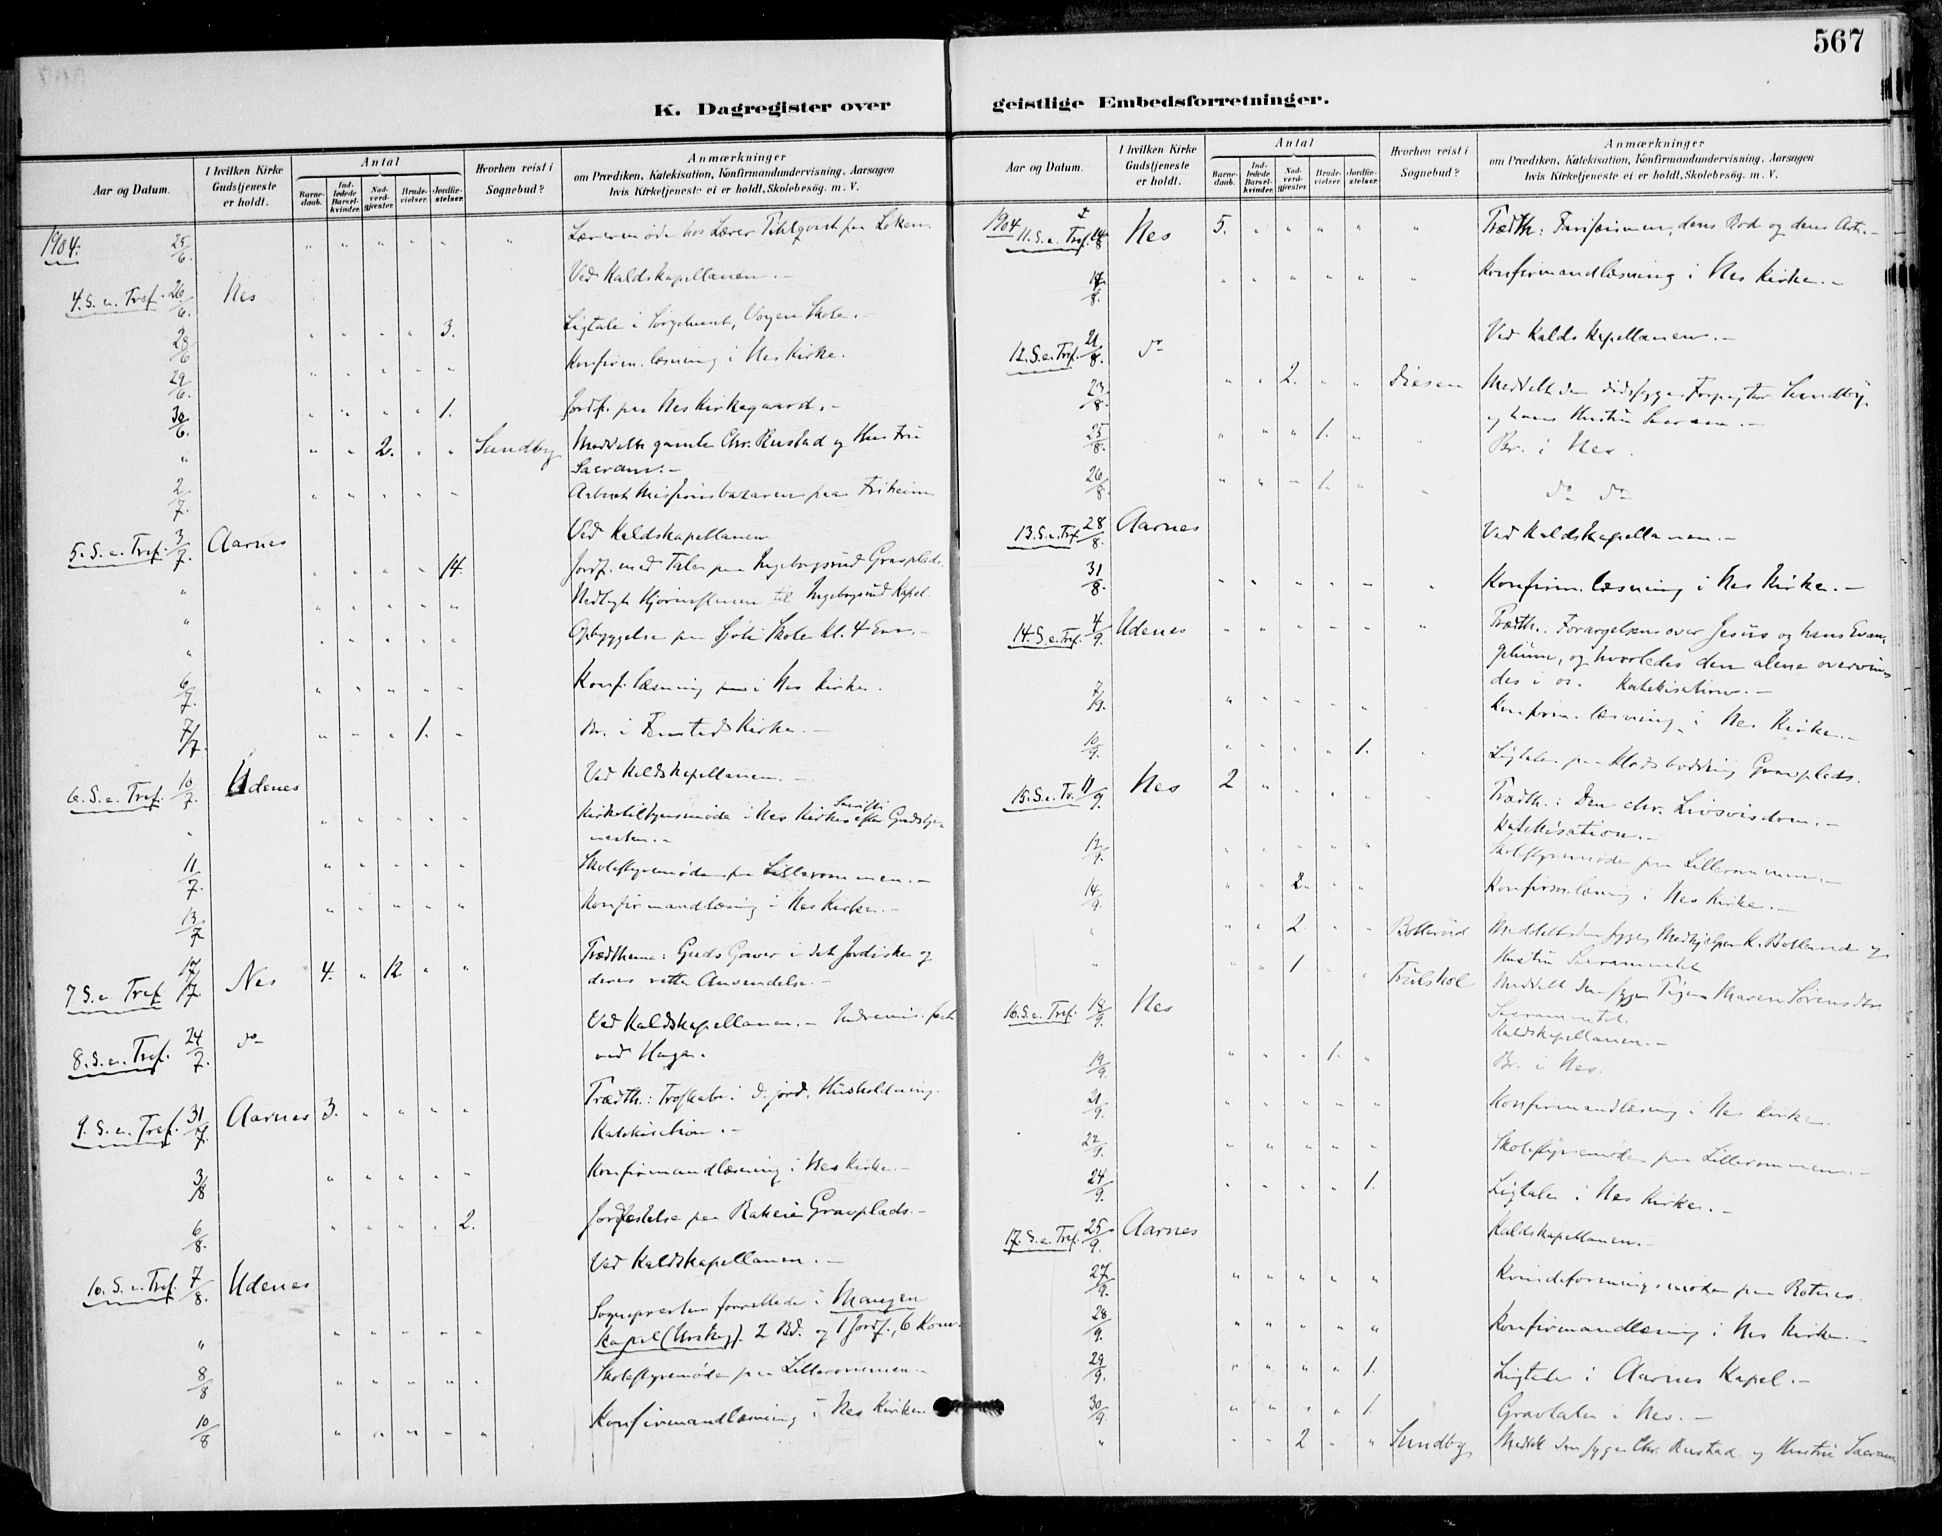 567
K. Dagregister over
geistlige Embedsforretninger.
Aar og Datum.
I hvilken Kirke Gudstjeneste er holdt.
Antal
Barne-daab.
Ind-ledede Barsel-kvinder.
Nad-verd-gjæster.
Brude-vielser.
Jordfæ-stelser.
Hvorhen reist i Sognebud?
Anmærkninger
om Prædiken, Katekisation, Konfirmandundervisning, Aarsagen
hvis Kirketjeneste ei er holdt, Skolebesøg. m. V.
1904. 25/6. Lærermøde hos Lærer
4. S. e. Tref. 26/6. Nes Ved Kaldskapellanen.-
28/6 3. Ligtale i Skole.-
29/6. Konfirm. læsning i Nes Kirke.
30/6. 1. Jordf. paa Nes Kirkegaard.-
" 2. Sundby Meddelte gamle Chr. Rustad og Hustru
Sacram.-
2/7. paa Friheim
5. S. e. Tref. 3/7. Aarnes Ved Kaldskapellanen
" 14. Jordf. med Taler paa Ingeborgsrud Gravplads.
" Nedlagt Hjørnestenen til Ingeborgsrud Kapel.
" Opbyggelse paa Skole Kl. 4 Em.-
6/7. Konf. læsning i Nes Kirke.
7/7. 1. Br. i Fensteds Kirke.-
6. S. e. Tref. 10/7. Udenes Ved Kaldskapellanen.-
" Kirketilsynsmøde i Nes Kirkes Sakristi efter Gudstje-
nesten.-
11/7. Skolestyremøde paa Lillerommen.-
13/7 Konfirmandlæsing i Nes Kirke.-
7. S. e. Tref. 17/7. Nes 4. " 12. Prædthema: Guds Gaver i det Jordiske og
deres rette Anvendelse.-
8. S. e. Tref. 24/7. do Ved Kaldskapellanen.- Indremis. fest
ved Haga.
9. S. e. Tref. 31/7. Aarnes 3. Prædth.: Troskab i d. jord. Husholdning.
Katekisation.-
3/8 Konfirmandlæsning i Nes Kirke.-
6/8. 2. Jordfæstelse paa Gravplads.-
10. S. e. Tref. 7/8. Udenes Ved Kaldskapellanen.-
" Sognepresten forrettede i Mangen
Kapel (Urskog). 2 Bd. og 1 Jordf., 6 Kom.
8/8 Skolestyremøde paa Lillerommen.-
10/8 Konfirmandlæsning i Nes Kirken
Aar og Datum.
I hvilken Kirke Gudstjeneste er holdt.
Antal
Barne-daab.
Ind-ledede Barsel-kvinder.
Nad-verd-gjæster.
Brude-vielser.
Jordfæ-stelser.
Hvorhen reist i Sognebud?
Anmærkninger
om Prædiken, Katekisation, Konfirmandundervisning, Aarsagen
hvis Kirketjeneste ei er holdt, Skolebesøg. m. V.
1904 11. S. e. Tref. 14/8 Nes 5. Prædth: Farisæismen, dens Rod og dens Art.-
17/8. Konfirmandlæsning i Nes Kirke.-
12. S. e. Tref. 21/8. do Ved Kaldskapellanen.-
23/8. 2. Diesen Meddelt den dødssyge Forpagter Sundby
og hans Hustru Sacram.-
25/8. 1. Br. i Nes.
26/8. 1. do do
13. S. e. Tref. 28/8. Aarnes Ved Kaldskapellanen.-
31/8. Konfirm. læsning i Nes Kirke.-
14. S. e. Tref. 4/9. Udenes Prædth.: Forargelsen over Jesus og hans Evan-
gelium, og hvorledes den alene overvin-
des i os. Katekisation.-
7/9. Konfirm. læsning i Nes Kirke.-
10/9. 1. Ligtale paa Gravplads.
15. S. e. Tr. 11/9 Nes 2 Prædth.: Den chr. Livsvisdom.-
Katekisation.-
12/9. Skolestyremøde paa Lillerommen.-
14/9. 2. Konfirm. læsning i Nes Kirke.-
" 2. Bollerud Meddelt den syge Medhjelper K. Bollerud og
Hustru Sacramentet
" 1. Trulshol Meddelt den syge Pige Maren Sørensdtr.
Sacramentet.
16. S. e. Tref. 18/9. Nes Kaldskapellanen.-
19/9. 1. Br. i Nes.
21/9. Konfirmandlæsing i Nes Kirke.
22/9. Skolestyremøde paa Lillerommen.-
24/9. 1. Ligtale i Nes Kirke.-
17. S. e. Tref. 25/9. Aarnes Kaldskapellanen.-
27/9. paa Rotnes.
28/9. Konfirmandlæsing i Nes Kirke.-
29/9. 1. Ligtale i Aarnes Kapel.-
30/9. 1. Gravtale i Nes.-
" 2 Sundby Meddelt den syge Chr. Rustad og Hustru Sacram.